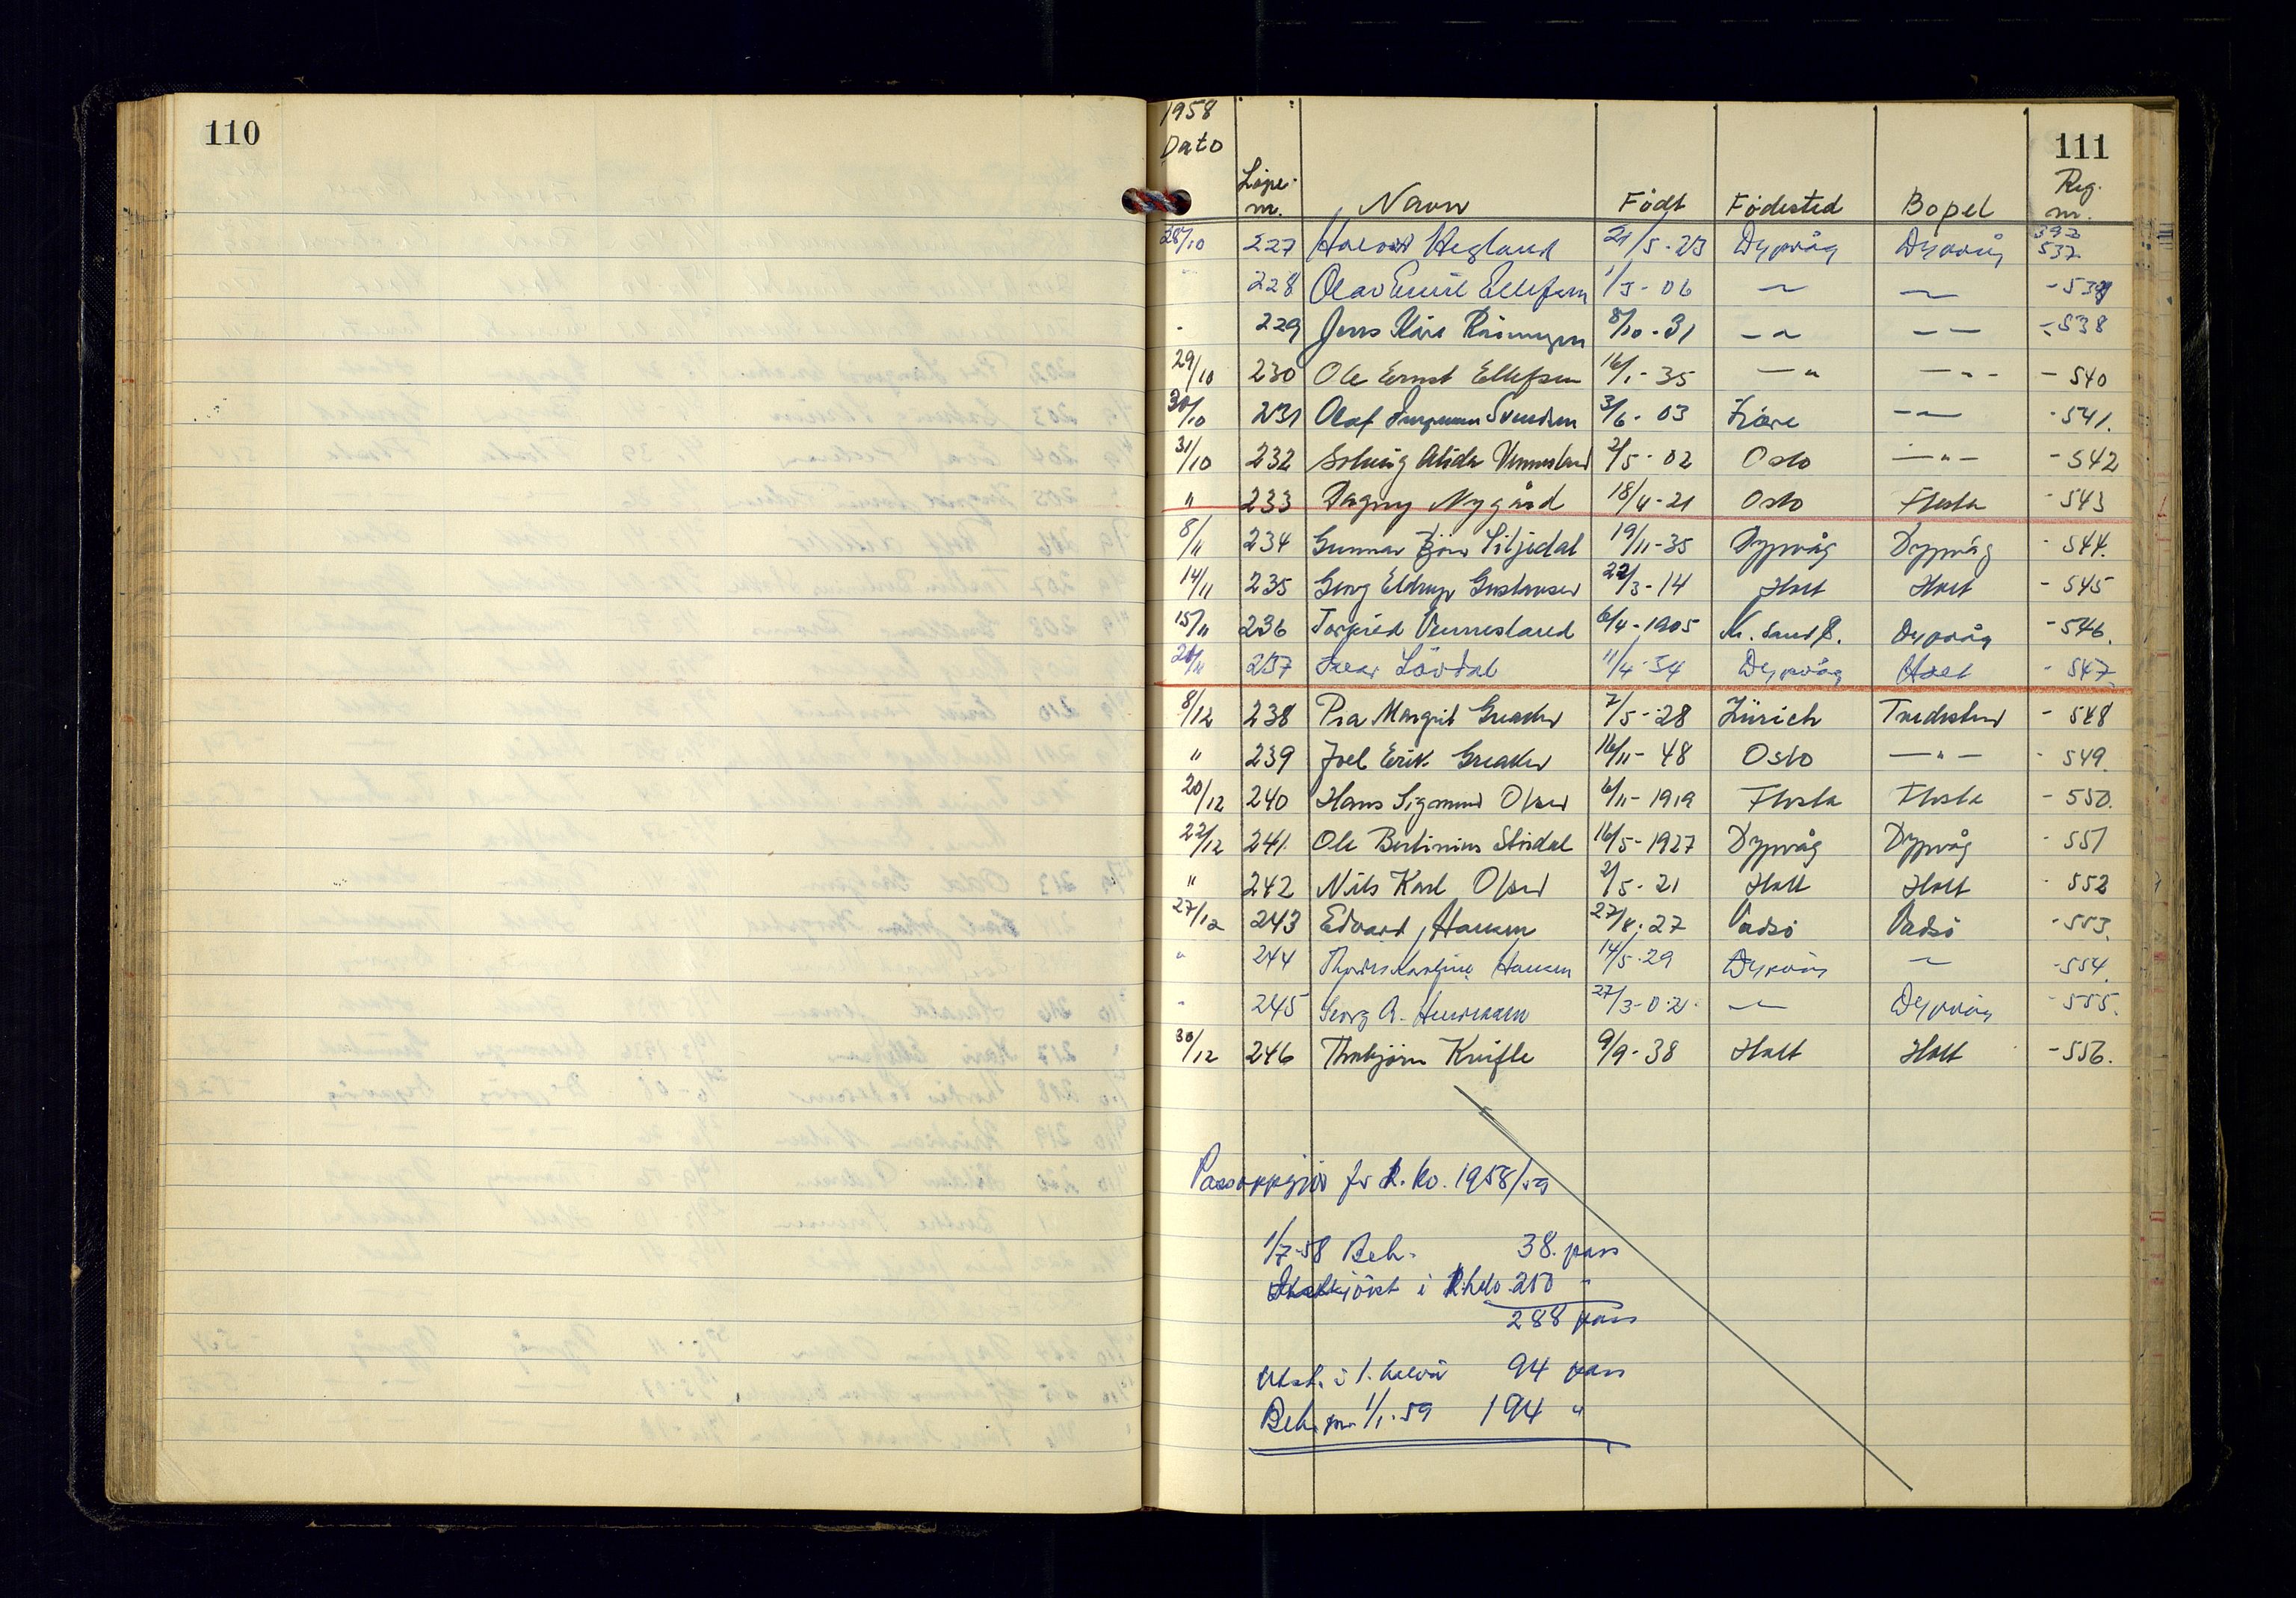 110
1958
Dato
111
Löpe-
nr.
Navn
Født
Fødested
Bopel
Reg.
nr.
28/10 227 Halvor Hegland 21/5-23 Dypvåg Dypvåg 393 537
" 228 Olav Emil Ellefsen 1/5-06 — — -539
" 229 Jens Kåre Rasmussen 8/10-31 — " — — -538
29/10 230 Ole Ernst Ellefsen 16/1-35 — " — " - -540
30/10 231 Olaf Svendsen 3/6-03 Fjære — " -541.
31/10 232 Solveig Alida Vennesland 2/5-02 Oslo — " — -542
" 233 Dagny Nygård 18/4-21 Oslo Flosta -543
8/11 234 Gunnar Liljedal 19/11-35 Dypvåg Dypvåg -544.
14/11 235 Georg Eldrup Gustavsen 22/3-14 Holt Holt -545
15/11 236 Torfred Vennesland 6/4-1905 Kr. Sand S. Dypvåg -546.
21/11 237 Ivar Lövdal 11/4-34 Dypvåg Holt -547
8/12 238 Pia Margrit Greaker 7/5-28 Zürich Tvedestrand -548
" 239 Joel Erik Greaker 16/11-48 Oslo — " — -549.
20/12 240 Hans Sigmund Olsen 6/11-1919 Flosta Flosta -550.
22/12 241. Ole Bertinius Stirdal 16/5-1927 Dypvåg Dypvåg -551
" 242 Nils Karl Olsen 2/5-21 Holt Holt -552
27/12 243 Edvard Hansen 27/8-27 Vadsö Vadsö -553.
" 244 Hansen 14/5-29 Dypvåg — -554
" 245 Georg A. 27/3-02. — Dypvåg -555.
30/12 246 Thorbjörn Knifle 9/9-38 Holt Holt -556.
Passoppgjör for R. Ko. 1958/59
1/7-58 Beh. 38. pass
i 250 "
288 pass
Utst. i 1. halvår 94 pass
Beh. pr. 1/1-59 194 "